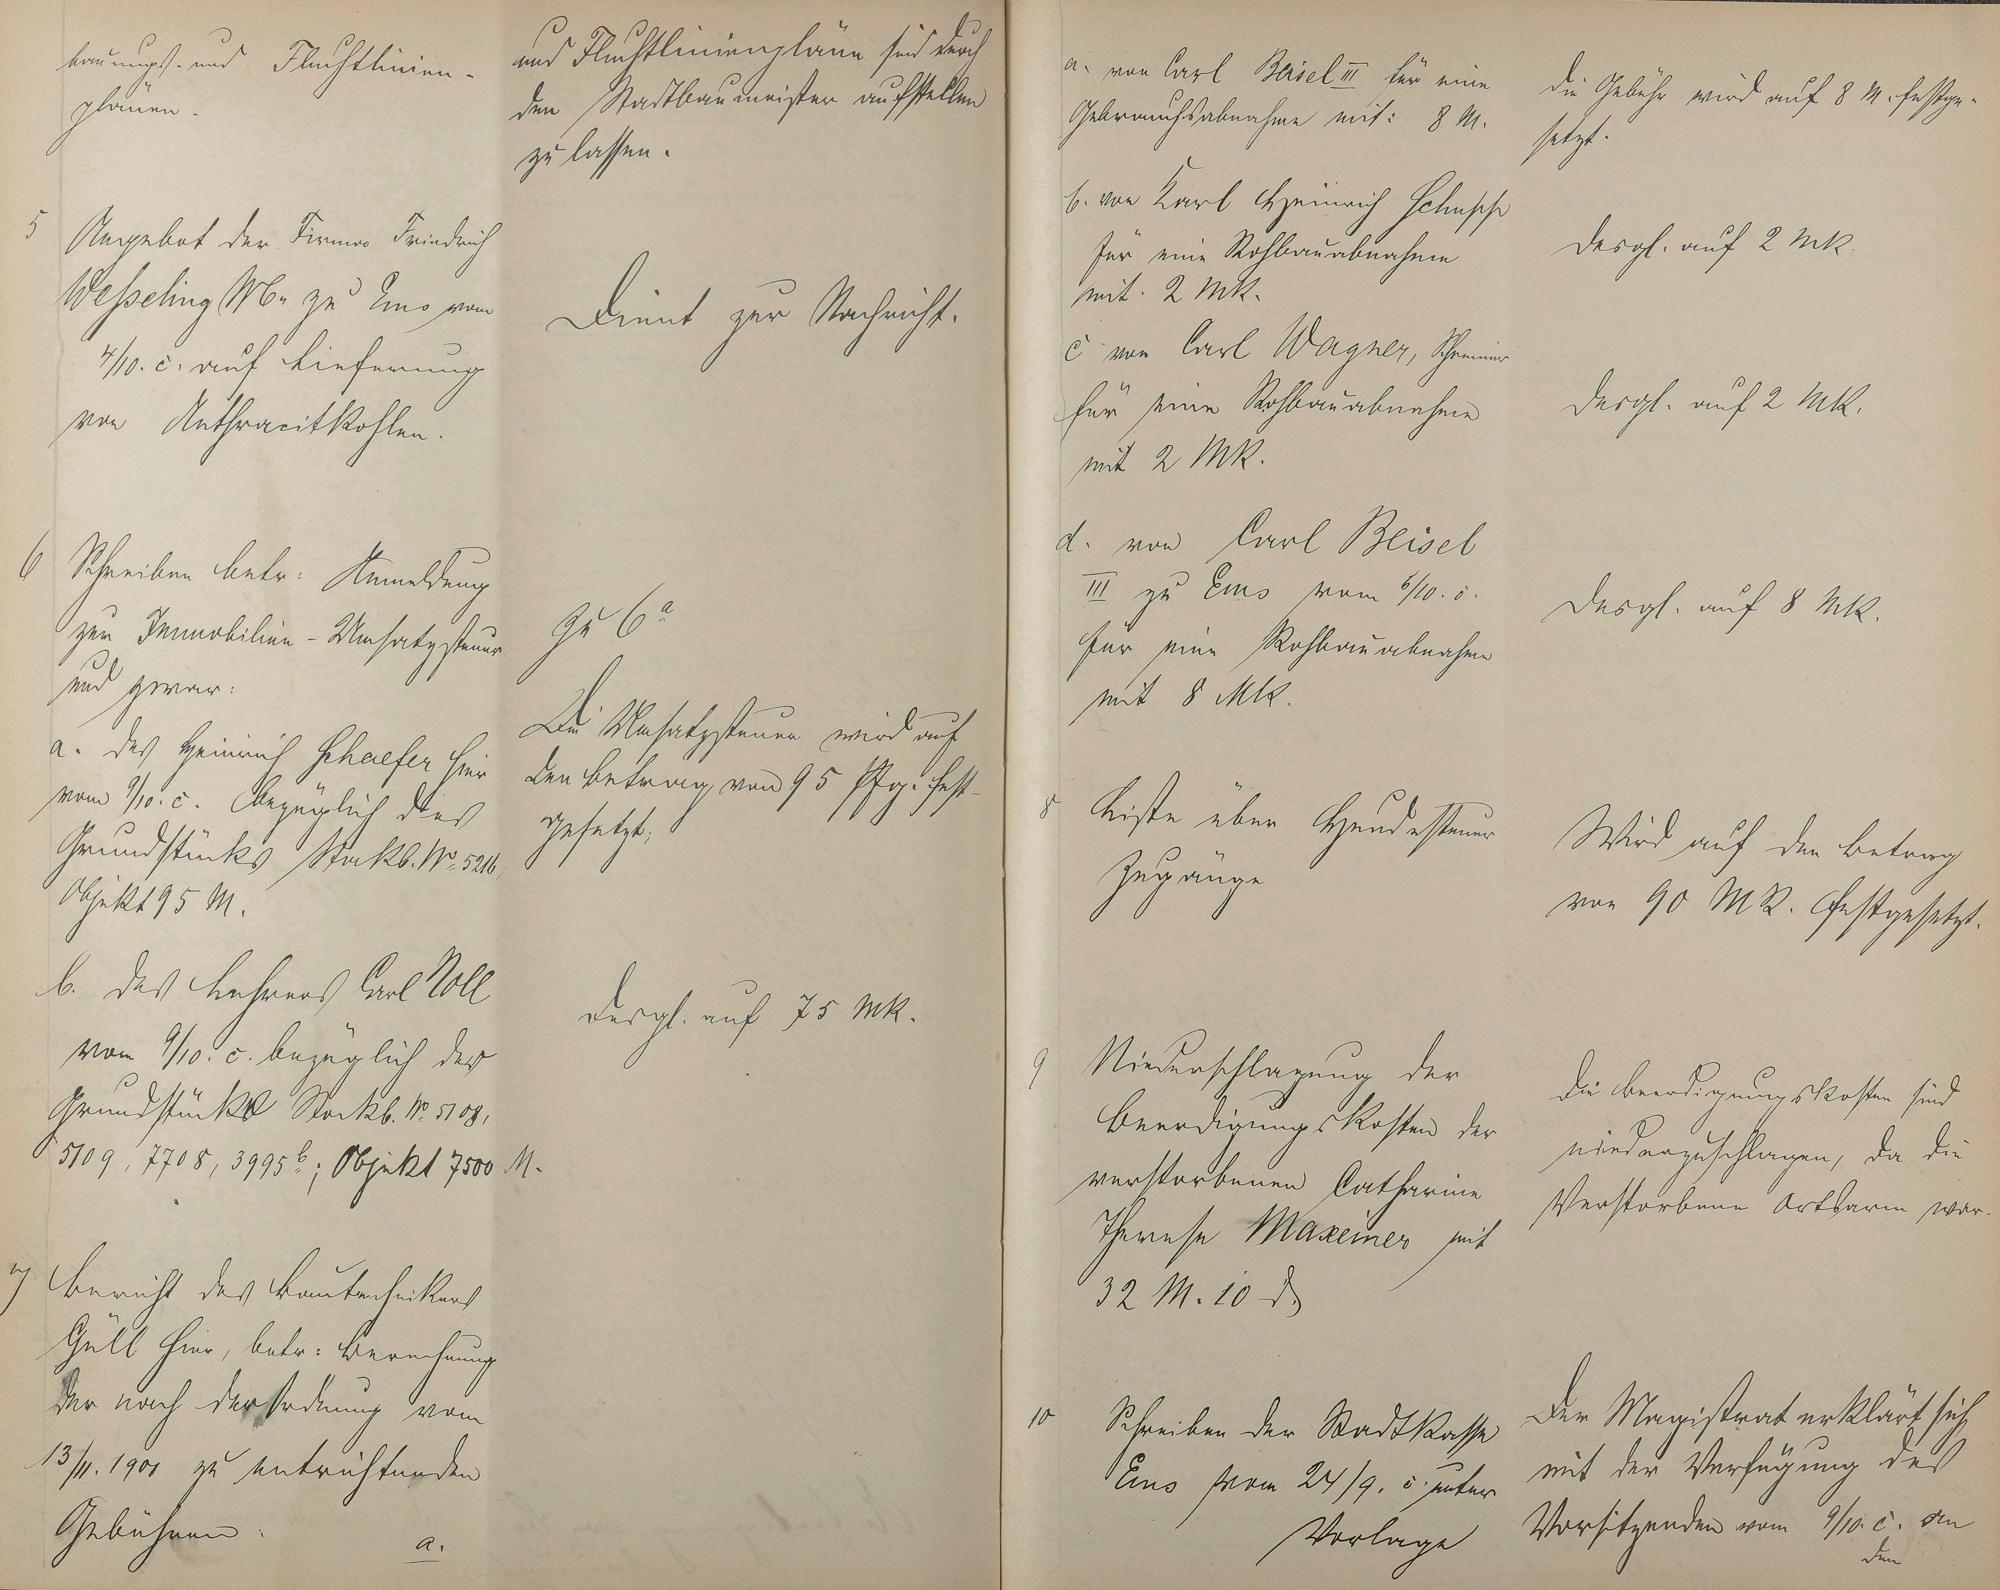 bauungs- und Fluchtlinien-
plänen.
und Fluchtlinienpläne sind durch
den Stadtbaumeister aufstellen
zu lassen.
5 Angebot der Firma Friedrich
Wesseling Mr zu Ems vom
4/10. c. auf Lieferung
von Anthracitkohlen.
Dient zur Nachricht.
6 Schreiben betr: Anmeldung
zur Immobilien-Umsatzsteuer
und zwar:
a. des Heinrich Schaefer hier
vom 9/10. c. bezüglich des
Grundstücks Stockb. No. 5216,
Objekt 95 M.
Zu 6a
Die Umsatzsteuer wird auf
den Betrag von 95 Pfg. fest-
gesetzt;
b. des Lehrers Carl Noll
vom 9/10. c. bezüglich der
Grundstücke Stockb. No. 5108,
5109, 7708, 3995b; Objekt 7500 M.
Desgl. auf 75 Mk.
7 Bericht des Bautechnikers
Güll hier, betr: Berechnung
der nach der Ordnung vom
13/11. 1901 zu entrichtenden
Gebühren.
a.
a. von Carl Beisel III für eine
Gebrauchsabnahme mit: 8 M.
Die Gebühr wird auf 8 M. festge-
setzt.
b. von Karl Heinrich Schupp
für eine Rohbauabnahme
mit 2 Mk.
Desgl. auf 2 Mk.
c von Carl Wagner, Schreiner
für eine Rohbauabnahme
mit 2 Mk.
Desgl. auf 2 Mk.
d. von Carl Beisel
III zu Ems vom 6/10. c.
für eine Rohbauabnahme
mit 8 Mk.
Desgl. auf 8 Mk.
8 Liste über Hundesteuer
Zugänge
Wird auf den Betrag
von 90 Mk. festgesetzt.
9 Niederschlagung der
Beerdigungskosten der
verstorbenen Catharine
Therese Maxeiner mit
32 M. 10 d.
Die Beerdigungskosten sind
niederzuschlagen, da die
Verstorbene ortsarm war.
10 Schreiben der Stadtkasse
Ems vom 24/9. c. unter
Vorlage
Der Magistrat erklärt sich
mit der Verfügung des
Vorsitzenden vom 9/10. c. an
den